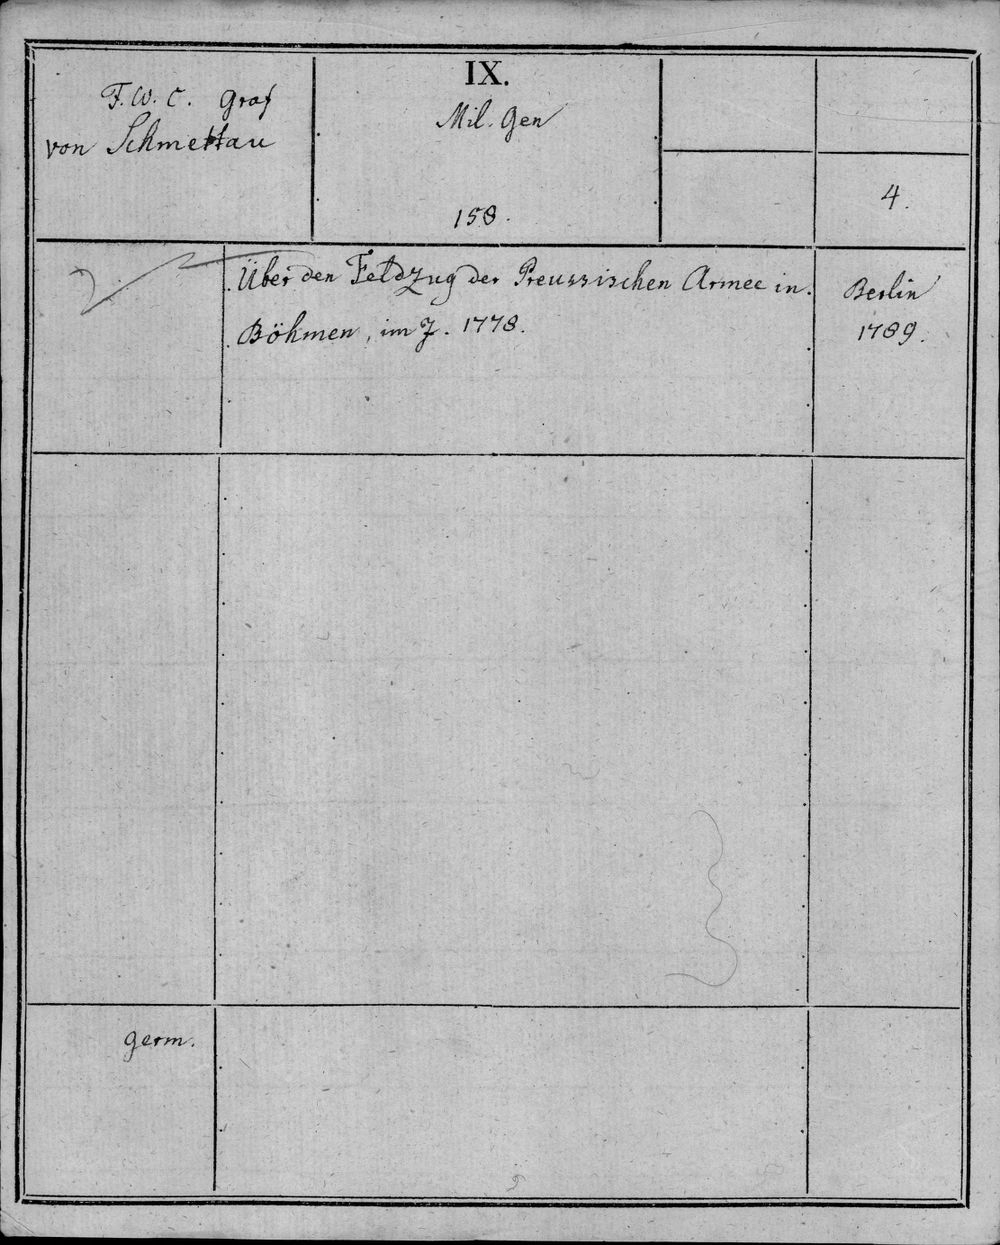 F. W. C. Graf
von Schmettau
IX.
Mil. Gen
158.
4.
Über den Feldzug der Preussischen Armee in
Böhmen, im J. 1778.
Berlin
1789.
germ.